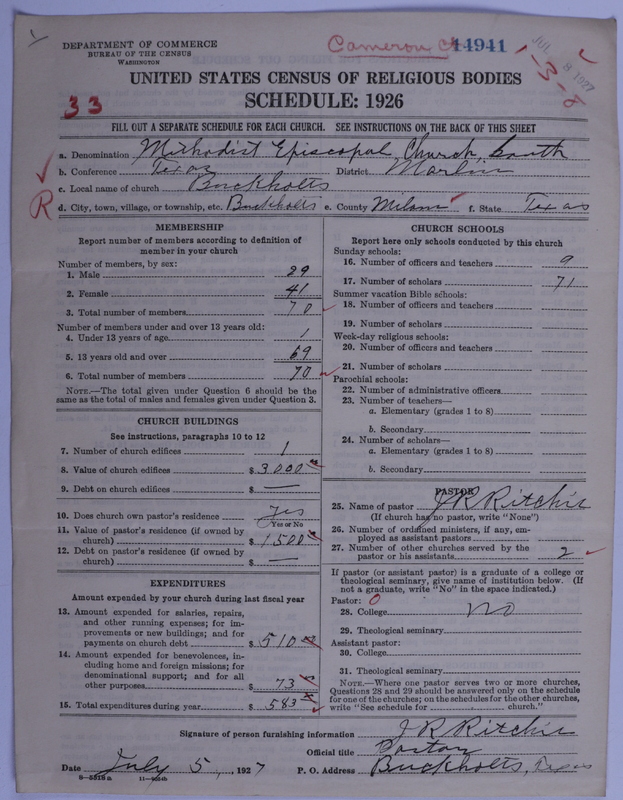 DEPARTMENT OF COMMERCE
BUREAU OF THE CENSUS
WASHINGTON
Cameron 14941
JUL 8 1927
UNITED STATES CENSUS OF RELIGIOUS BODIES
33
SCHEDULE: 1926
FILL OUT A SEPARATE SCHEDULE FOR EACH CHURCH. SEE INSTRUCTIONS ON THE BACK OF THIS SHEET
a. Denomination Methodist Episcopal Church, South
b. Conference Texas District Marlin
c. Local name of church Buckholts
R
d. City, town, village, or township, etc. Buckholts e. County Milam f. State Texas
MEMBERSHIP
Report number of members according to definition of
member in your church
Number of members, by sex:
1. Male 29
2. Female 41
3. Total number of members 70
Number of members under and over 13 years old:
4. Under 13 years of age 1
5. 13 years old and over 69
6. Total number of members 70
NOTE.—The total given under Question 6 should be the
same as the total of males and females given under Question 3.
CHURCH BUILDINGS
See instructions, paragraphs 10 to 12
7. Number of church edifices 1
8. Value of church edifices $ 3,000
9. Debt on church edifices $ —
10. Does church own pastor's residence Yes
Yes or No
11. Value of pastor's residence (if owned by
church) $ 1500
12. Debt on pastor's residence (if owned by
church) $ —
EXPENDITURES
Amount expended by your church during last fiscal year
13. Amount expended for salaries, repairs,
and other running expenses; for im-
provements or new buildings; and for
payments on church debt $ 510
14. Amount expended for benevolences, in-
cluding home and foreign missions; for
denominational support; and for all
other purposes $ 73
15. Total expenditures during year $ 583
CHURCH SCHOOLS
Report here only schools conducted by this church
Sunday schools:
16. Number of officers and teachers 9
17. Number of scholars 71
Summer vacation Bible schools:
18. Number of officers and teachers
19. Number of scholars
Week-day religious schools:
20. Number of officers and teachers
21. Number of scholars
Parochial schools:
22. Number of administrative officers
23. Number of teachers—
a. Elementary (grades 1 to 8)
b. Secondary
24. Number of scholars—
a. Elementary (grades 1 to 8)
b. Secondary
PASTOR
25. Name of pastor J R Ritchie
(If church has no pastor, write "None")
26. Number of ordained ministers, if any, em-
ployed as assistant pastors
27. Number of other churches served by the
pastor or his assistants 2
If pastor (or assistant pastor) is a graduate of a college or
theological seminary, give name of institution below. (If
not a graduate, write "No" in the space indicated.)
Pastor: 0
28. College No
29. Theological seminary
Assistant pastor:
30. College
31. Theological seminary
NOTE.—Where one pastor serves two or more churches,
Questions 28 and 29 should be answered only on the schedule
for one of the churches; on the schedules for the other churches,
write "See schedule for church."
Signature of person furnishing information J R Ritchie
Official title Pastor
Date July 5, 1927 P. O. Address Buckholts, Texas
8—5516a